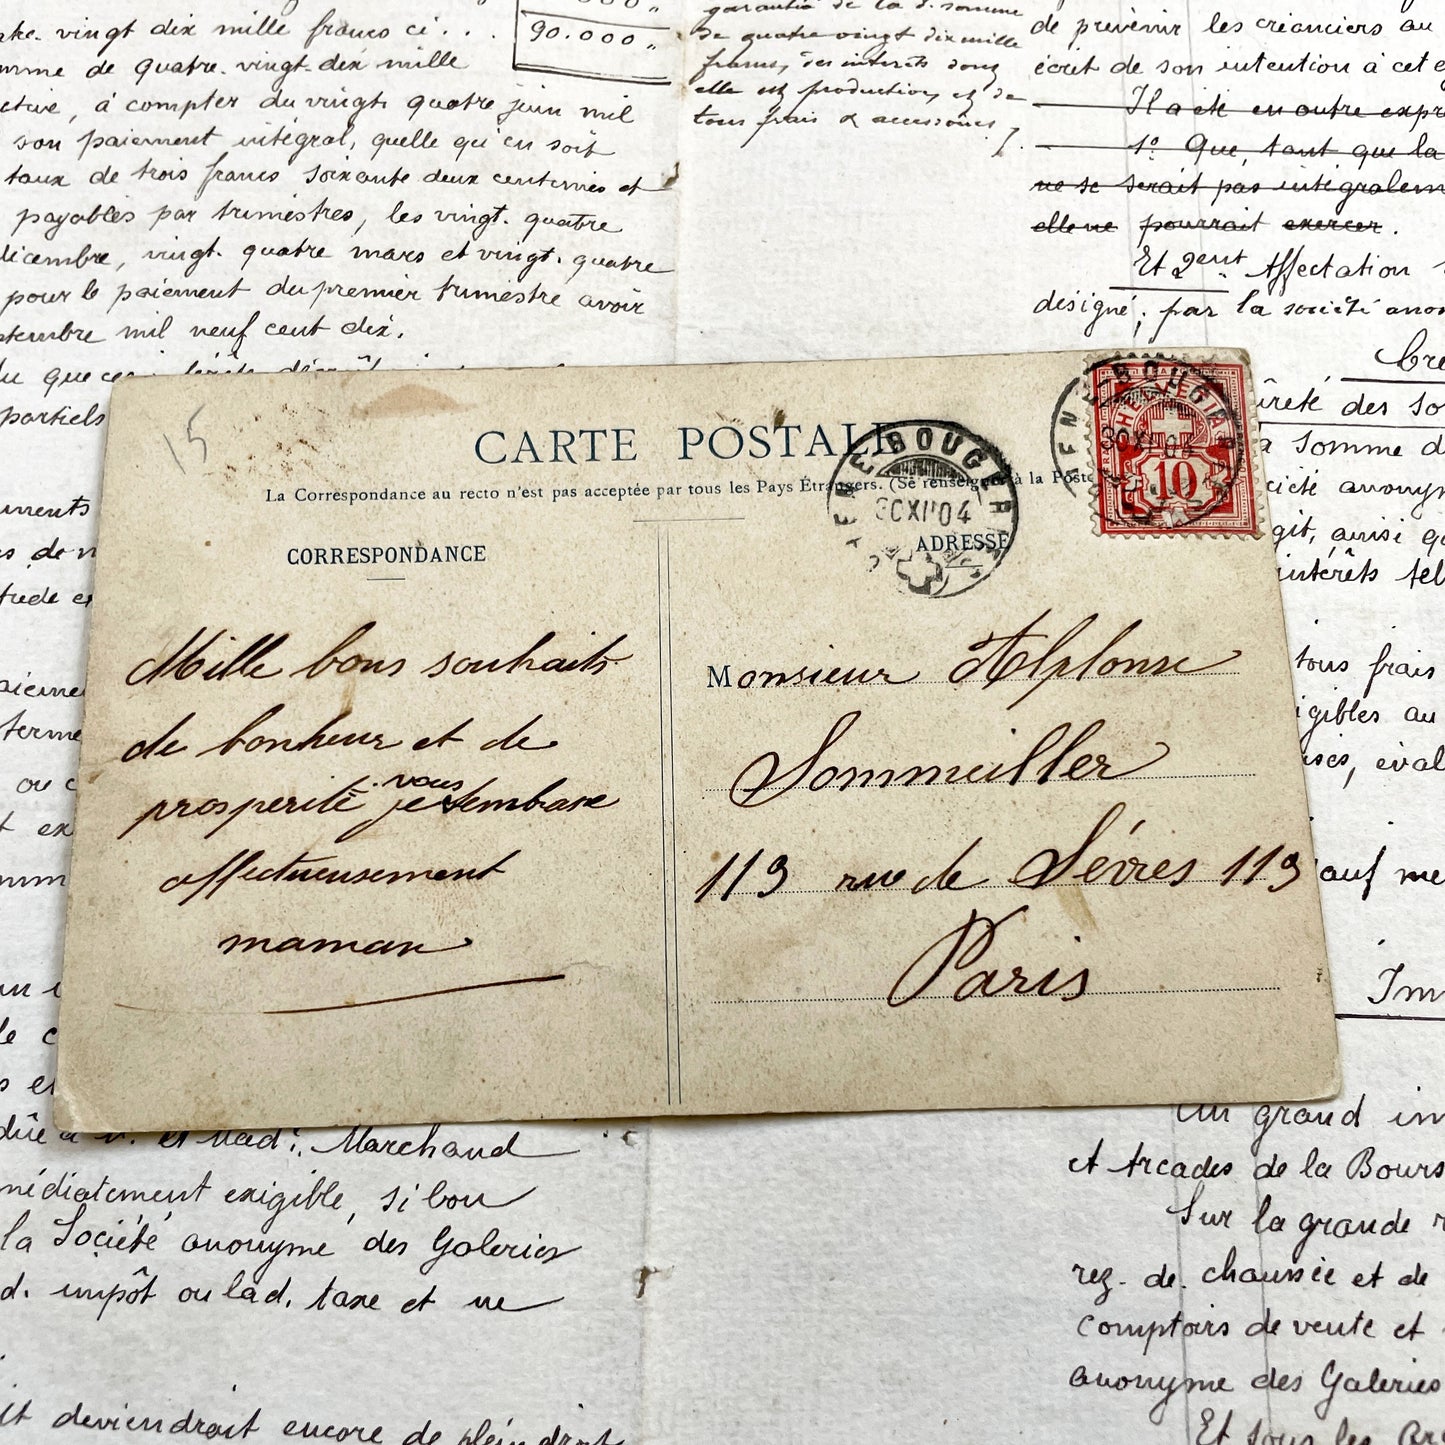 ake. vingt dix mille francs ci . . .
90.000 "
mme de quatre. vingt. dix mille
à compter du vingt. quatre juin mil
son paiement intégral, quelle qu'en soit
taux de trois francs soixante deux centimes et
payables par trimestres, les vingt. quatre
décembre, vingt. quatre mars et vingt. quatre
pour le paiement du premier trimestre avoir
ptembre mil neuf cent dix.
partiels
garantie de la d. somme
de quatre vingt dix mille
francs, des intérêts dont
elle est production, et de
tous frais & accessoires
de prévenir les créanciers au
écrit de son intention à cet e
Il a été en outre expr
1º Que, tant que la
ne se serait pas intégralem
elle ne pourrait exercer.
Et 2ent Affectation
désigné; par la société anon
Cre
ûreté des so
a somme d
ciété anonym
git, ainsi q
intérêts tel
tous frais
igibles au
ises, éval
auf me
15
CARTE POSTALE
La Correspondance au recto n'est pas acceptée par tous les Pays Étrangers. (Se renseigner à la Poste
CORRESPONDANCE
ADRESSE
BOUGERI
XII 04
HELVETIA
10
Mille bons souhaits
de bonheur et de
prosperité. je vous embrasse
affectueusement
maman
Monsieur Alphonse
Sommeiller
119 rue de Sèvres 119
Paris
ments
aiemen
terme
ou c
t ex
Im
dûe à M. et Mad. Marchand
médiatement exigible, si bon
la Société anonyme des Galeries
d. impôt ou lad. taxe et ne
it deviendrait encore de plein droit
Un grand im
et Arcades de la Bours
Sur la grande r
rez. de. chaussée et de
comptoirs de vente et
anonyme des Galeries
Et tous les